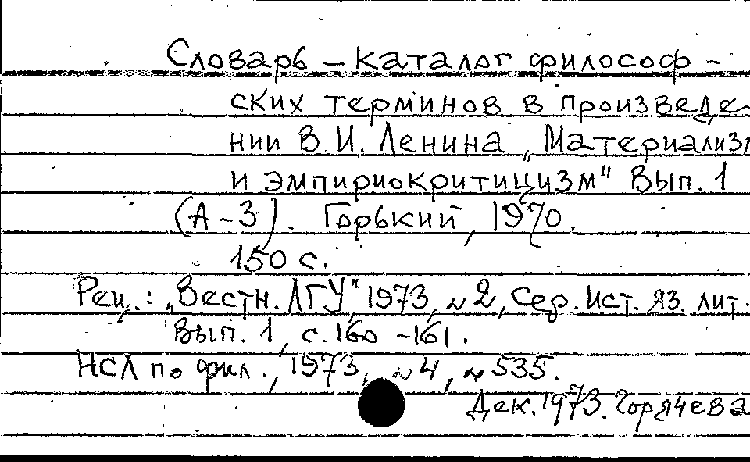 Словарь – каталог философ –
ских терминов в произведе-
нии В.И. Ленина „Материализм
и эмпириокритицизм" Вып. 1
(А – З). Горький, 1970.
150 с.
Рец.: „Вестн. ЛГУ", 1973, № 2, Сер. Ист. яз. лит.
Вып. 1, с. 160 – 161.
НСЛ по фил., 1973, № 4, № 535.
Дек. 1973. Горячева